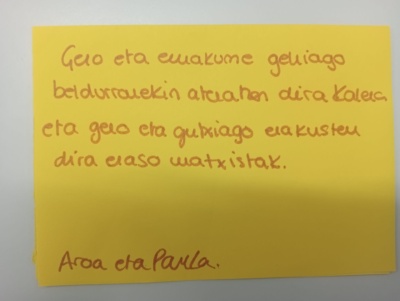 Gero eta emakume gehiago
beldurrarekin ateratzen dira kalera
eta gero eta gutxiago erakusten
dira eraso matxistak.
Aroa eta Paula.